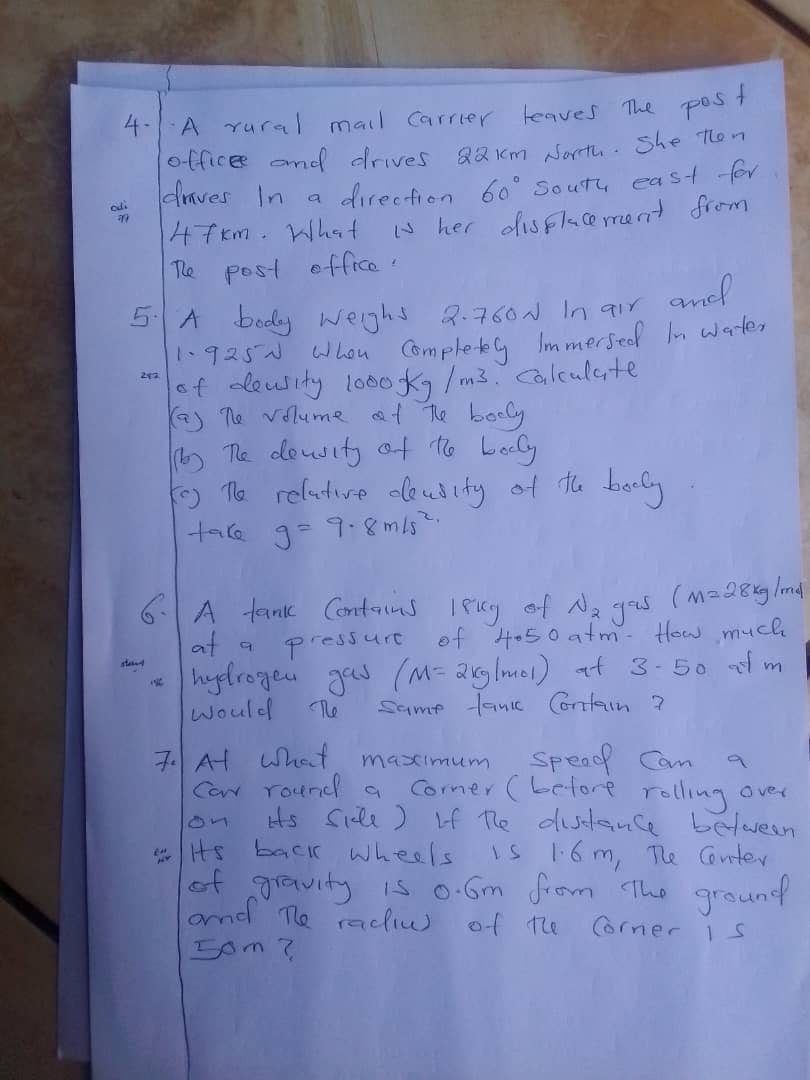 4. A rural mail carrier leaves the post
office and drives 22 km North. She then
drives in a direction 60° South east for
47km. What is her displacement from
The post office.
5. A body weighs 2.760N In air and
1.925N when Completely Immersed In water
of density 1000 kg/m3. Calculate
(a) The volume of the body
(b) The density of the body
(c) The relative density of the body
take g = 9.8m/s².
6. A tank Contains 18kg of N₂ gas (M=28kg/mol
at a pressure of 4.50 atm. How much
hydrogen gas (M= 2kg/mol) at 3.50 atm
would The same tank Contain ?
7. At what maximum speed can a
Car round a corner (before rolling over
on its side) If the distance between
Its back wheels is 1.6m, The Center
of gravity is 0.6m from the ground
and The radius of the Corner is
50m ?